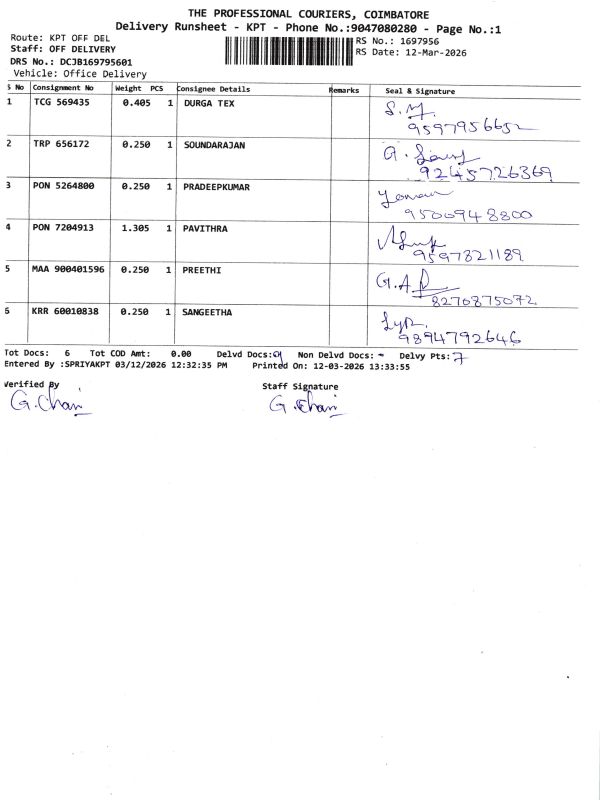 THE PROFESSIONAL COURIERS, COIMBATORE
Delivery Runsheet - KPT - Phone No.:9047080280 - Page No.:1
Route: KPT OFF DEL RS No.: 1697956
Staff: OFF DELIVERY RS Date: 12-Mar-2026
DRS No.: DCJB169795601
Vehicle: Office Delivery
S No Consignment No Weight PCS Consignee Details Remarks Seal & Signature
1 TCG 569435 0.405 1 DURGA TEX
9597956652
2 TRP 656172 0.250 1 SOUNDARAJAN
9245726369
3 PON 5264800 0.250 1 PRADEEPKUMAR
9500948800
4 PON 7204913 1.305 1 PAVITHRA
9597821189
5 MAA 900401596 0.250 1 PREETHI
8270875072
6 KRR 60010838 0.250 1 SANGEETHA
9894792646
Tot Docs: 6 Tot COD Amt: 0.00 Delvd Docs: Non Delvd Docs: - Delvy Pts: 7
Entered By :SPRIYAKPT 03/12/2026 12:32:35 PM Printed On: 12-03-2026 13:33:55
Verified By Staff Signature